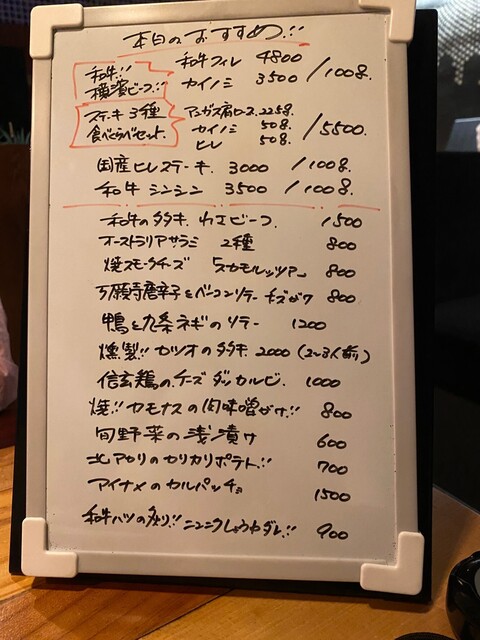 本日のおすすめ!!
和牛!! 横濱ビーフ!!
和牛フィレ 4800
カイノミ 3500 /100g.
ステーキ3種 食べくらべセット.
アンガス肩ロース.225g.
カイノミ 50g.
ヒレ 50g. /5500.
国産ヒレステーキ. 3000 /100g.
和牛シンシン 3500 /100g.
和牛のタタキ. 1500
オーストラリアサラミ 2種 800
焼スモークチーズ 「スカモルッツァ」 800
万願寺唐辛子とベーコンソテー チーズがけ 800
鴨と九条ネギのソテー 1200
燻製!! カツオのタタキ 2000 (2~3人前)
信玄鶏のチーズダッカルビ. 1000
焼!! カモナスの肉味噌がけ!! 800
旬野菜の浅漬け 600
北アカリのカリカリポテト!! 700
アイナメのカルパッチョ 1500
和牛ハツの炙り!! ニンニクしょうゆダレ!! 900